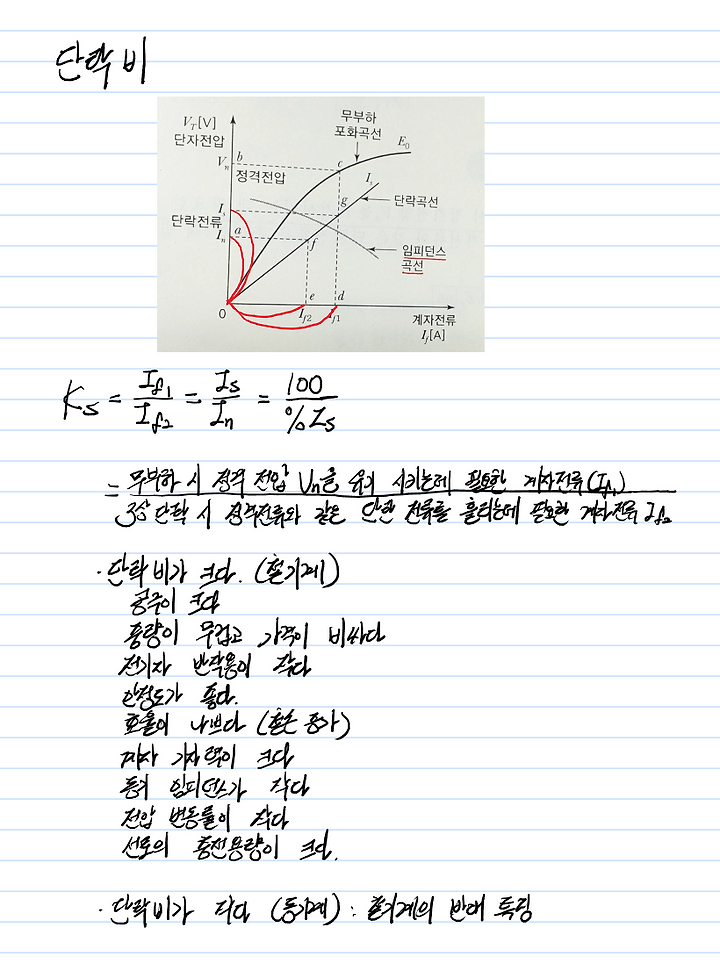 단락비
V_T[V]
단자전압
무부하
포화곡선
E_0
V_n
b
c
정격전압
I_s
I_s
g
단락곡선
단락전류
I_n
a
f
임피던스
곡선
0
e
d
I_f2
I_f1
계자전류
I_f[A]
K_s = I_f1/I_f2 = I_s/I_n = 100/%Z_s
= 무부하 시 정격 전압 V_n을 유기 시키는데 필요한 계자전류(I_f1)
3상 단락 시 정격전류와 같은 단락 전류를 흘리는데 필요한 계자전류 I_f2
· 단락비가 크다. (철기계)
공극이 크다
중량이 무겁고 가격이 비싸다
전기자 반작용이 작다
안정도가 좋다.
효율이 나쁘다 (철손 증가)
계자 기자력이 크다
동기 임피던스가 작다
전압 변동률이 작다
선로의 충전용량이 크다.
· 단락비가 작다 (동기계) : 철기계의 반대 특징